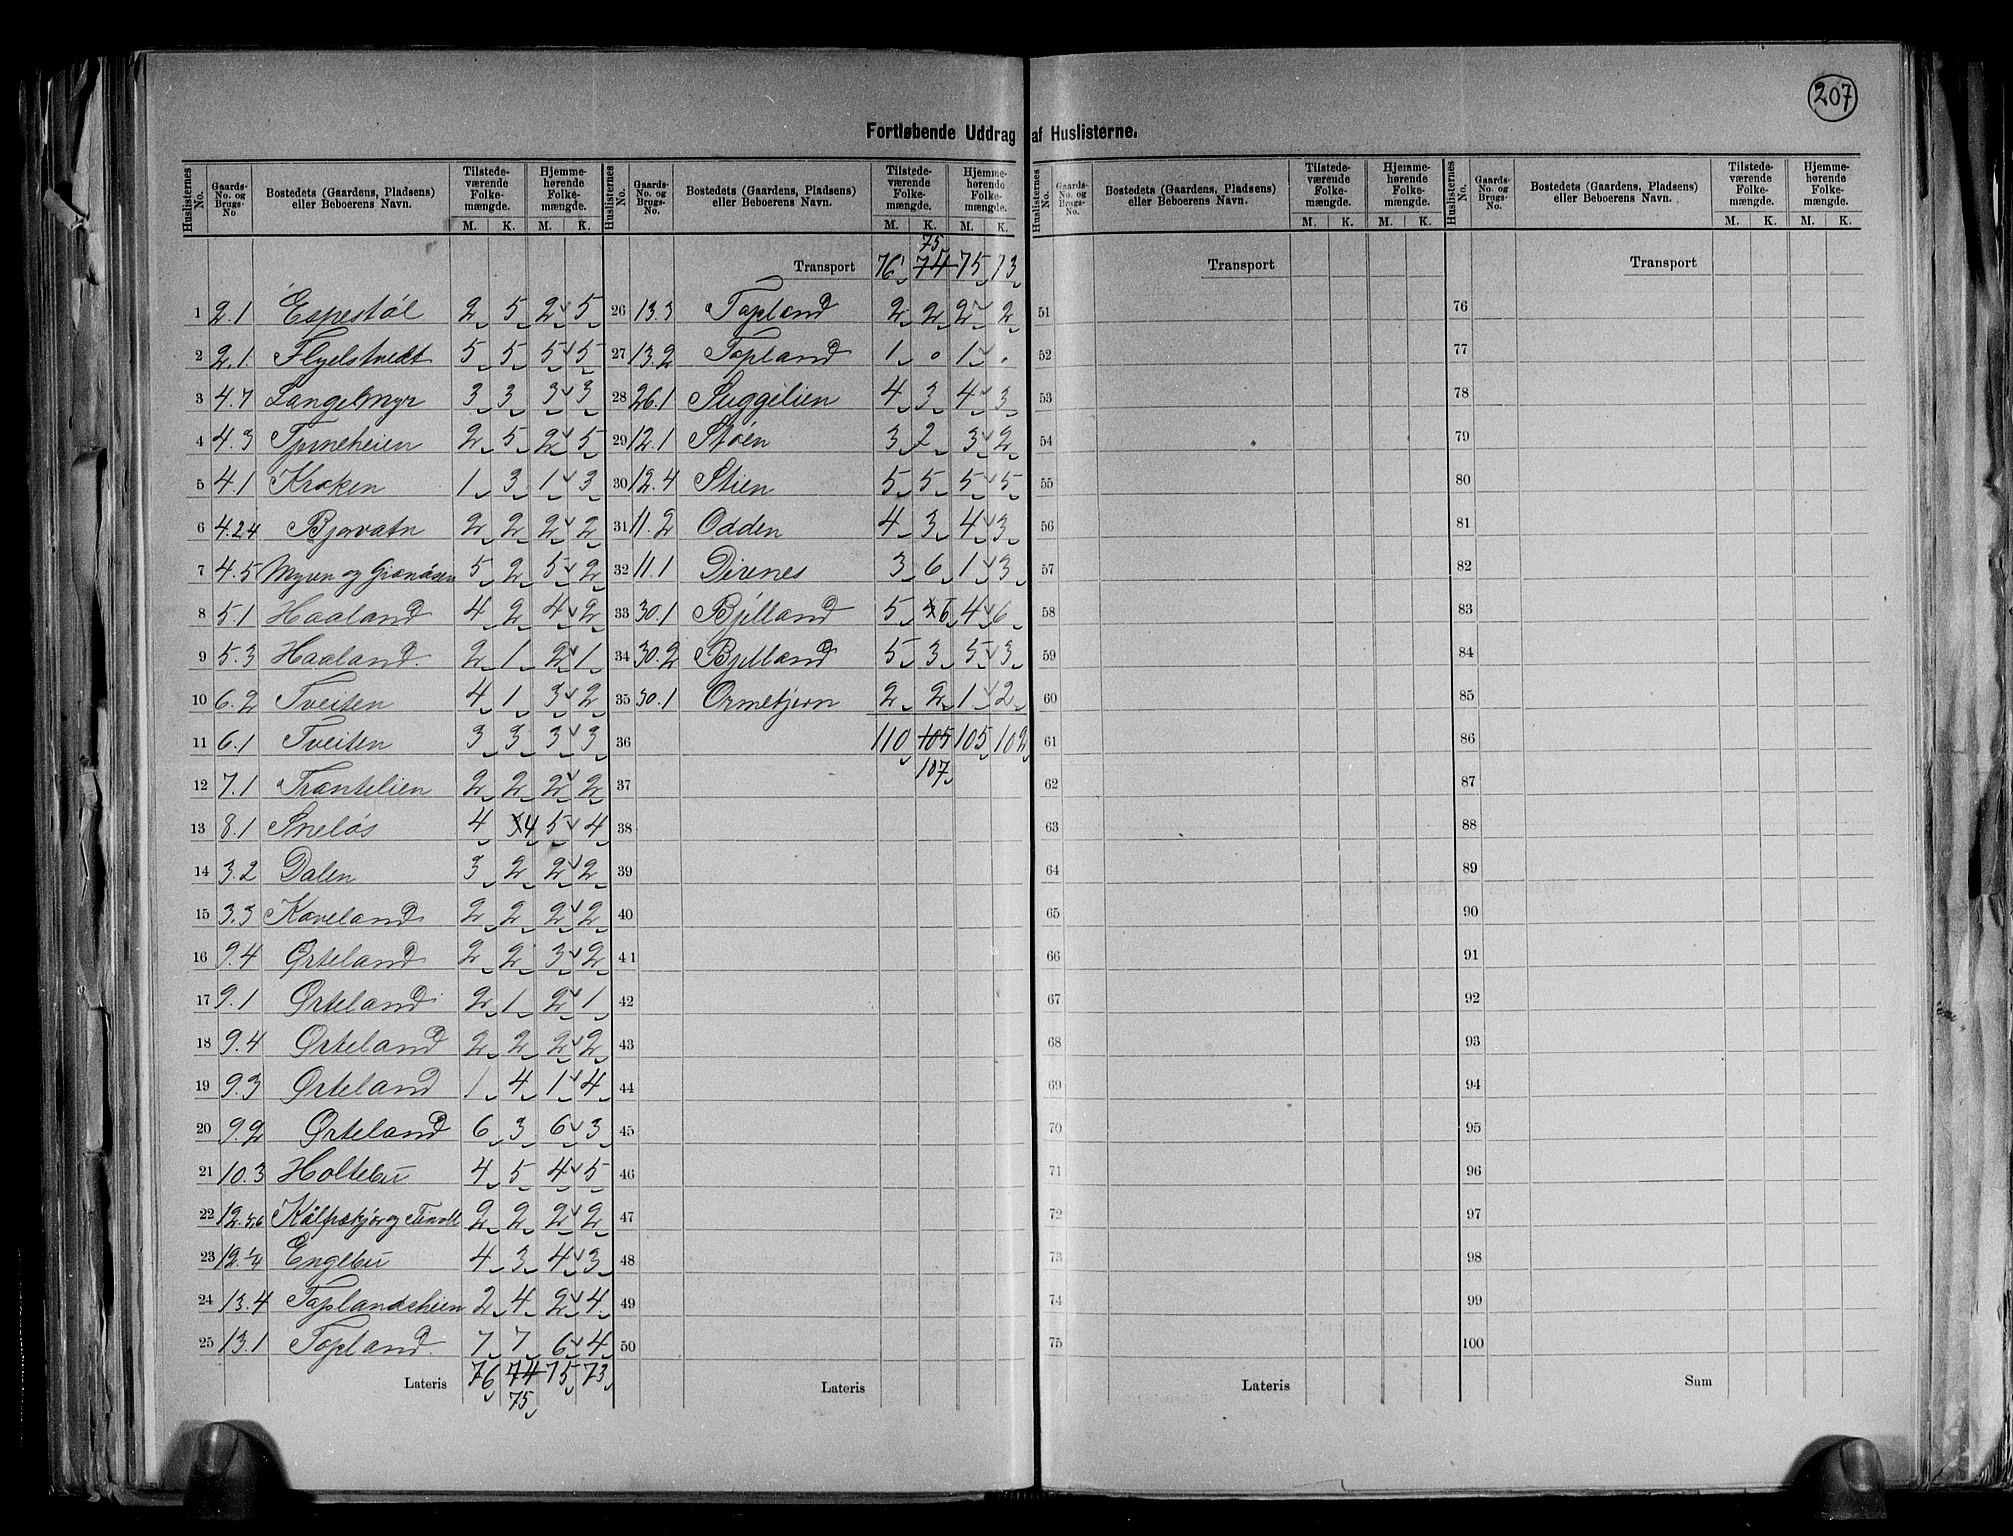 207
Fortløbende Uddrag af Huslisterne.
Huslisternes No. Gaards- No. og Brugs- No. Bostedets (Gaardens, Pladsens) eller Beboerens Navn. Tilstede- værende Folke- mængde. Hjemme- hørende Folke- mængde. M. K. M. K.
1 2.1 Espestøl 2 5 2 5
2 2.1. Flyelstvedt 5 5 5 5
3 4.7 Langelmyr 3 3 3 3
4 4.3 Tjerneheien 2 5 2 5
5 4.1 Kroken 1 3 1 3
6 4.24 Bjorvatn 2 2 2 2
7 4.5 Myren og Grænåsen 5 2 5 2
8 5.1 Haaland 4 2 4 2
9 5.3 Haaland 2 1 2 1
10 6.2 Tveiten 4 1 3 2
11 6.1 Tveiten 3 3 3 3
12 7.1 Træntelien 2 2 2 2
13 8.1 Sneløs 4 4 5 4
14 3.2 Dalen 3 2 2 2
15 3.3 Kaveland 2 2 2 2
16 9.4 Ørteland 2 2 3 2
17 9.1 Ørteland 2 1 2 1
18 9.4 Ørteland 2 2 2 2
19 9.3 Ørteland 1 4 1 4
20 9.2 Ørteland 6 3 6 3
21 10.3 Holtebu 4 5 4 5
22 12.5,6 2 2 2 2
23 12.4 Englebu 4 3 4 3
24 13.4 Toplandsheien 2 4 2 4
25 13.1 Topland 7 7 6 4
Lateris 76 74 75 73
75
Huslisternes No. Gaards- No. og Brugs- No. Bostedets (Gaardens, Pladsens) eller Beboerens Navn. Tilstede- værende Folke- mængde. Hjemme- hørende Folke- mængde. M. K. M. K.
75
Transport 76 74 75 73
26 13.3 Topland 2 2 2 2
27 13.2 Topland 1 0 1 .
28 26.1 Suggelien 4 3 4 3
29 12.1 Støen 3 2 3 2
30 12.4 Stien 5 5 5 5
31 11.2 Odden 4 3 4 3
32 11.1 Direnes 3 6 1 3
33 30.1 Bjelland 5 6 4 6
34 30.2 Bjelland 5 3 5 3
35 30.1 Ormekjern 2 2 1 2
36 110 105 105 102
107
37
38
39
40
41
42
43
44
45
46
47
48
49
50
Lateris
Huslisternes No. Gaards- No. og Brugs- No. Bostedets (Gaardens, Pladsens) eller Beboerens Navn. Tilstede- værende Folke- mængde. Hjemme- hørende Folke- mængde. M. K. M. K.
Transport
51
52
53
54
55
56
57
58
59
60
61
62
63
64
65
66
67
68
69
70
71
72
73
74
75
Lateris
Huslisternes No. Gaards- No. og Brugs- No. Bostedets (Gaardens, Pladsens) eller Beboerens Navn. Tilstede- værende Folke- mængde. Hjemme- hørende Folke- mængde. M. K. M. K.
Transport
76
77
78
79
80
81
82
83
84
85
86
87
88
89
90
91
92
93
94
95
96
97
98
99
100
Sum